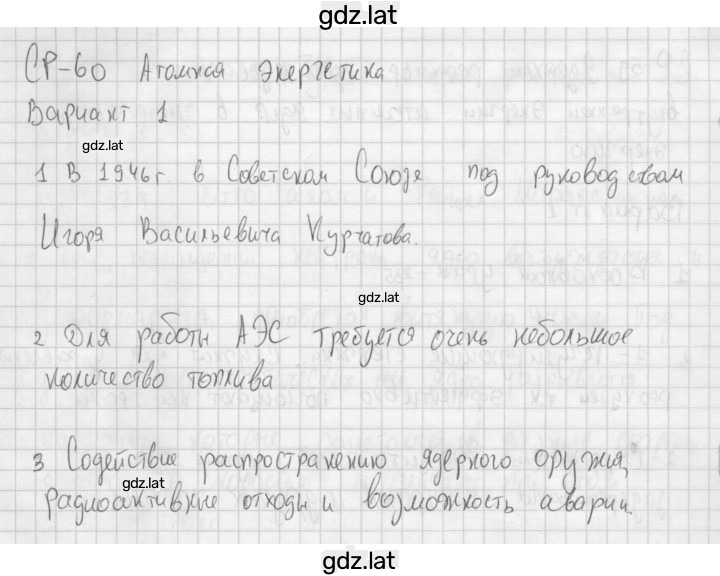 gdz.lat
СР-60 Атомная энергетика
Вариант 1
gdz.lat
1 В 1946г в Советском Союзе под руководством
Игоря Васильевича Курчатова.
gdz.lat
2 Для работы АЭС требуется очень небольшое
количество топлива
3 Содействие распространению ядерного оружия,
gdz.lat
радиоактивные отходы и возможность аварии
gdz.lat